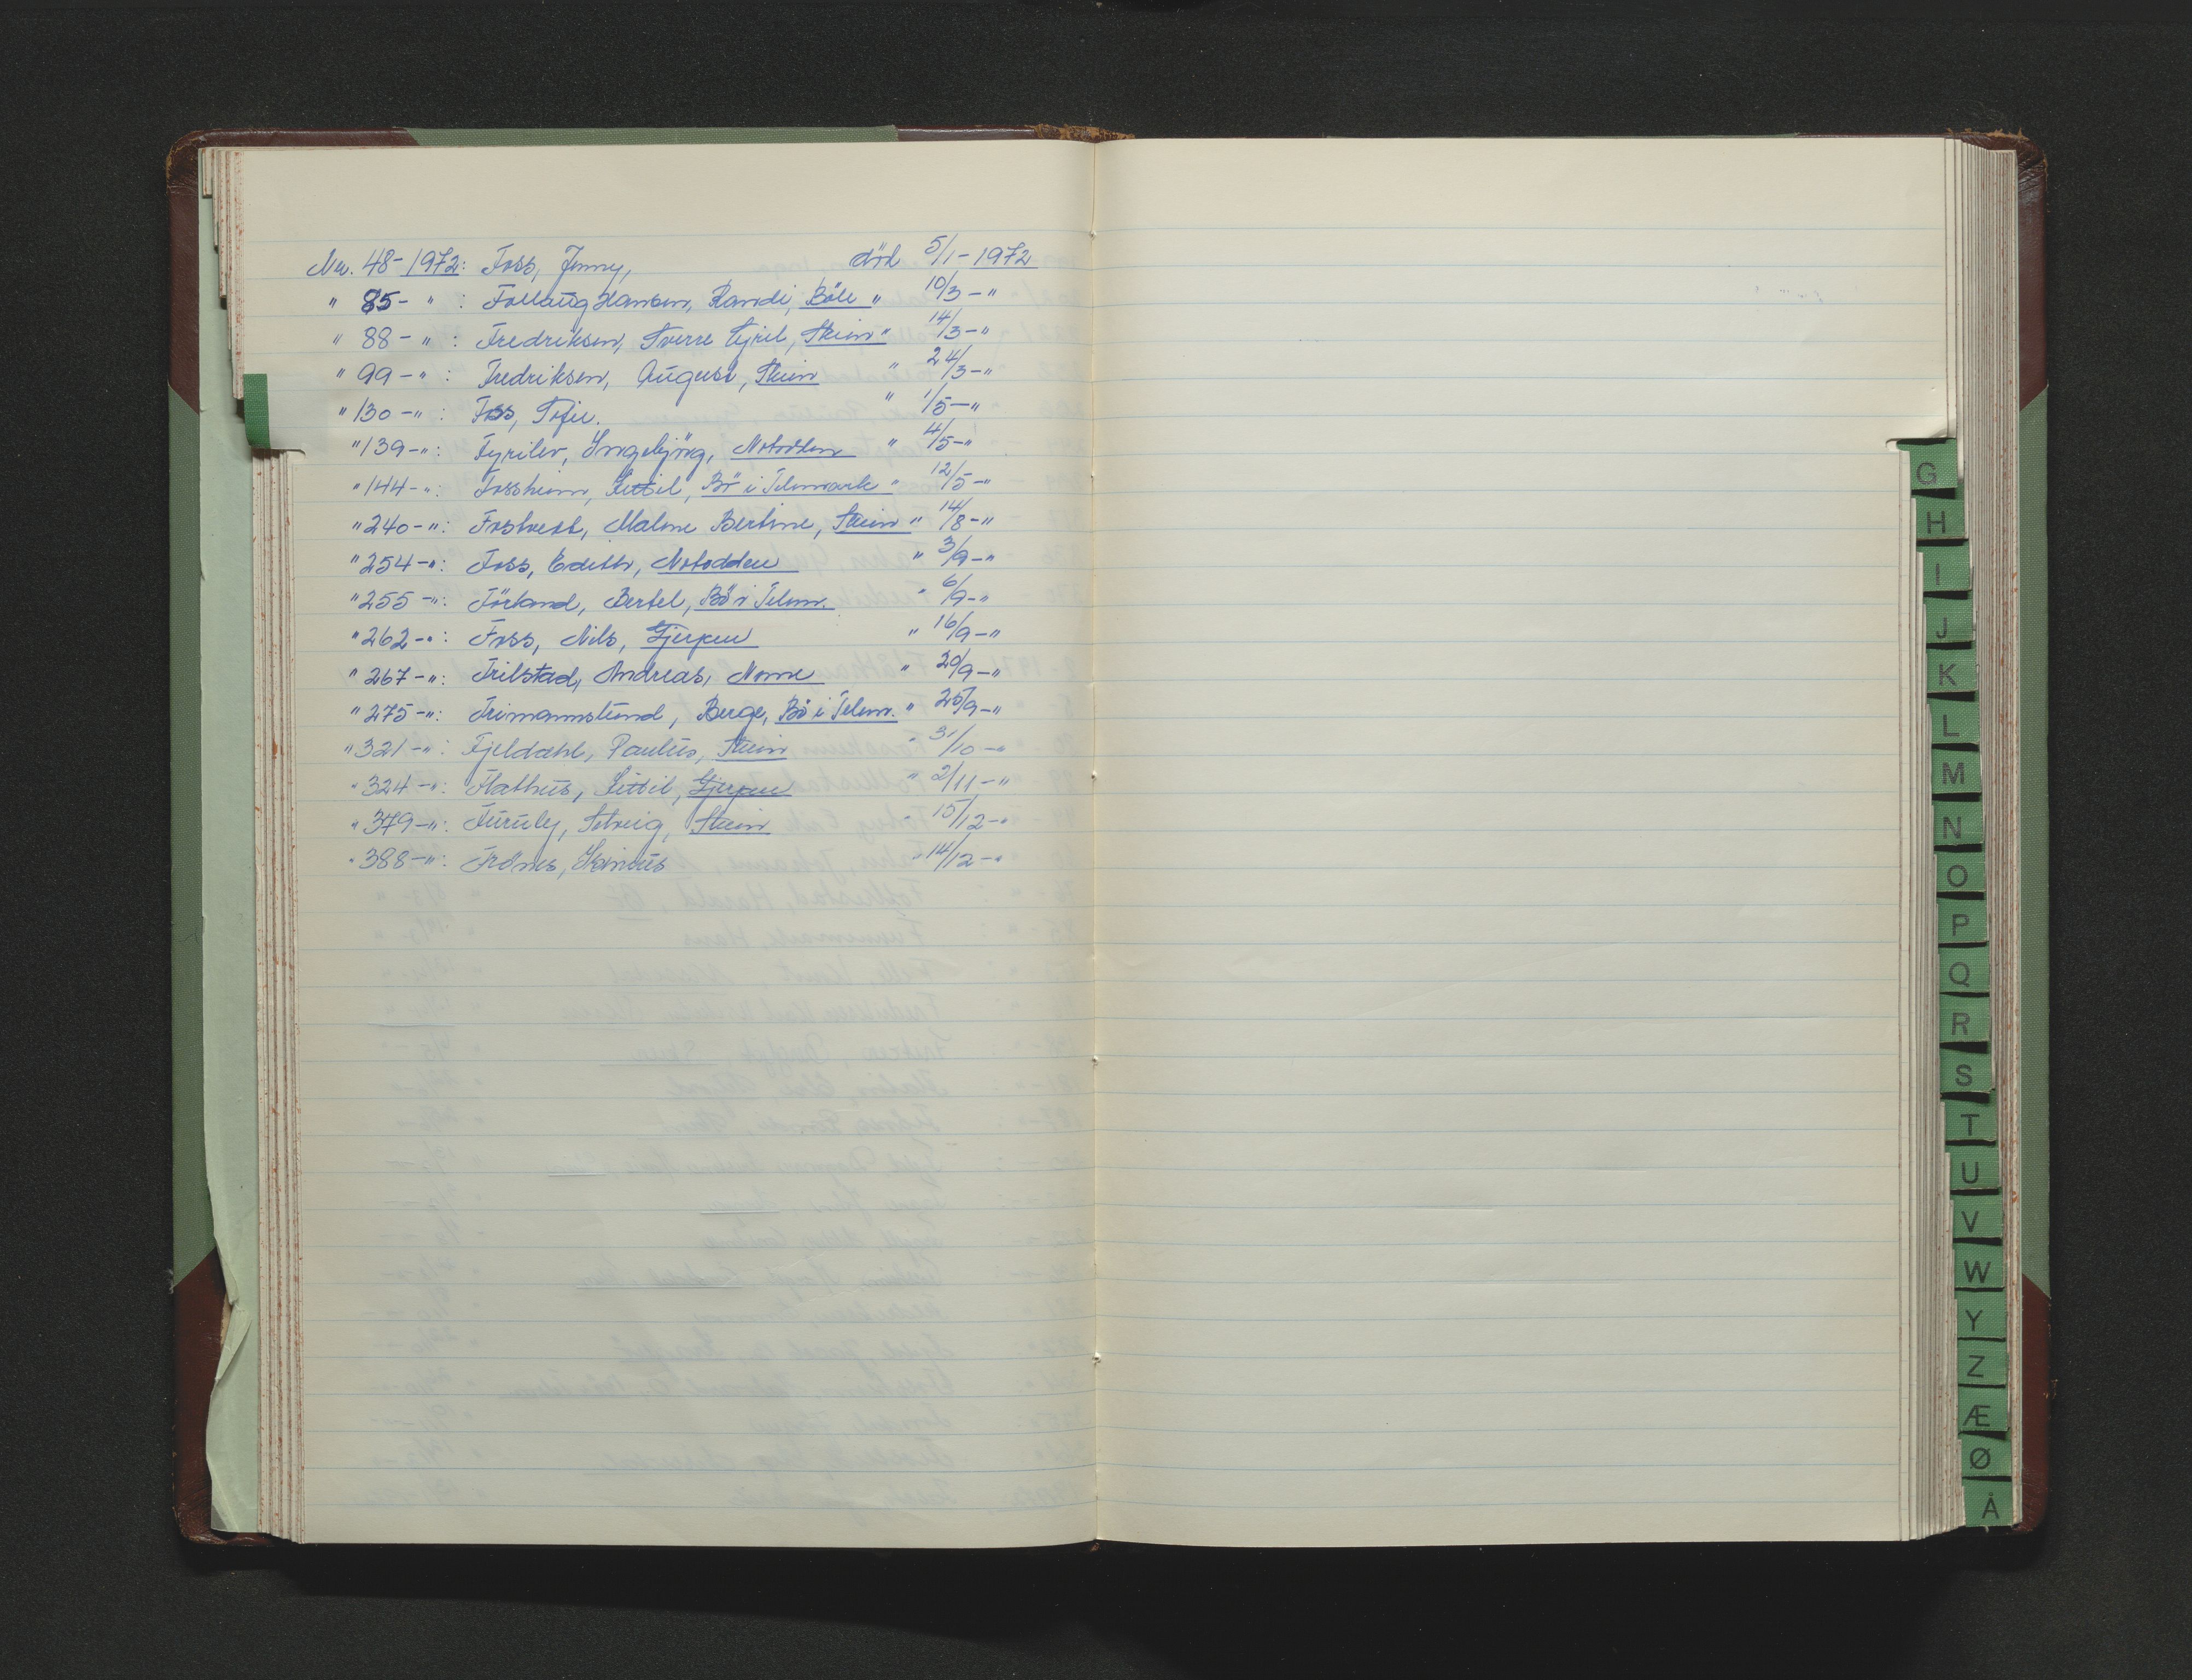 Nr. 48-1972: Foss, Jenny, död 5/1-1972
" 85- " : Follaug Hansen, Randi, Böle " 10/3-"
" 88- " : Fredriksen, Sverre Egil, Skien " 14/3-"
" 99-" : Fredriksen, August, Skien " 24/3-"
" 130-" : Foss, Sofie. " 1/5-"
" 139-" : Fyrilev, Ingebjörg, Notodden " 4/5-"
" 144-" : Fossheim, Kittil, Bö i Telemark " 12/5-"
" 240-" : Fostvest, Malene Bertine, Skien " 14/8-"
" 254-" : Foss, Edith, Notodden " 3/9-"
" 255-" : Förland, Bertel, Bö i Telem. " 6/9-"
" 262-" : Foss, Nils, Gjerpen " 16/9-"
" 267-" : Frilstad, Andreas, Nome " 20/9-"
" 275-" : Frimannslund, Berge, Bö i Telem. " 25/9-"
" 321-" : Fjeldahl, Paulus, Skien " 31/10-"
" 324-" : Flathus, Kittil, Gjerpen " 2/11-"
" 379-" : Furuly, Solveig, Skien " 15/12-"
" 388-" : Frönes, " 14/12-"
G
H
I
J
K
L
M
N
O
P
Q
R
S
T
U
V
W
Y
Z
Æ
Ø
Å